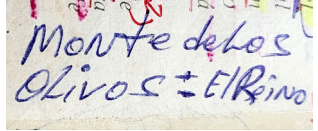 Monte de Los
Olivos = El Reino